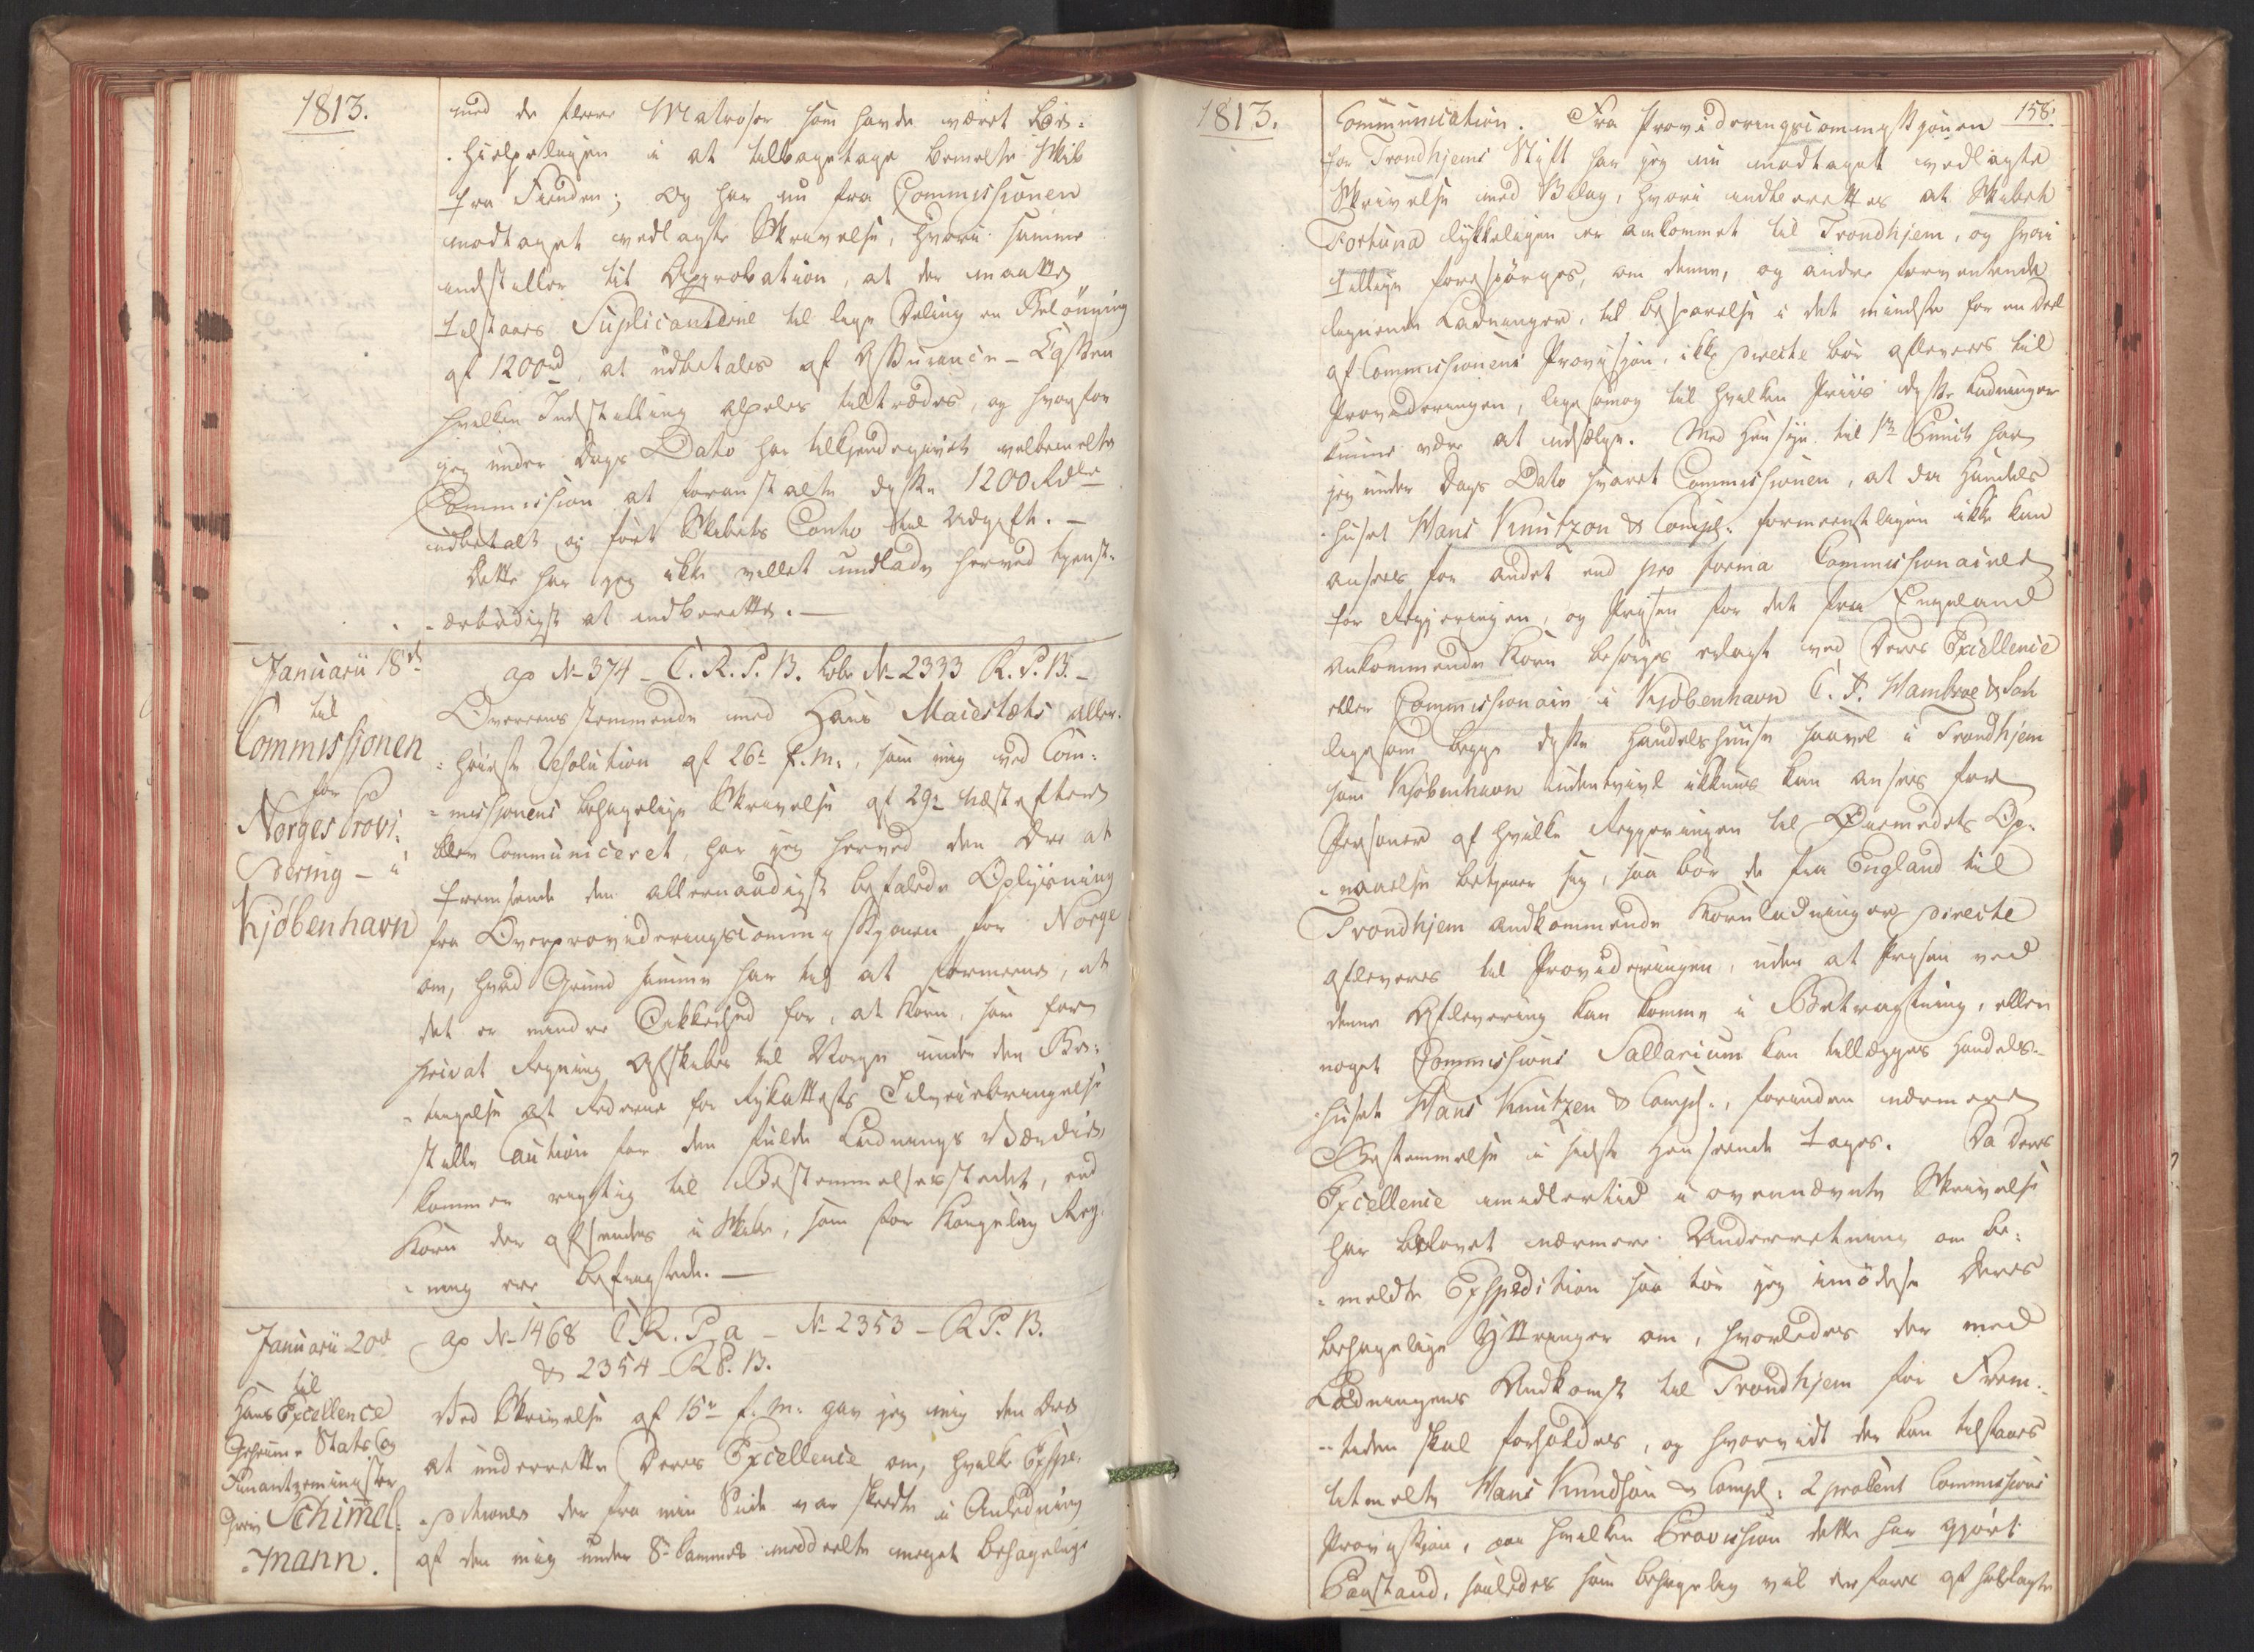 1813.
med de fleere Matroser som havde været be¬
hielpeligen i at tilbagetage bemelte Skib
fra Fienden; og har nu fra Commissionen
modtaget vedlagte Skrivelse, hvori samme
indstiller til Approbation, at der maatte
tilstaaes Suplicanterne til lige Deling en Belønning
af 1200rd, at udbetales af Assurance-Cassen
hvilken Indstilling alpeles tiltrædes, og hvorfor
jeg under Dags Dato har tilkjendegivet velbemelte
Commission at foranstalte disse 1200 Rdlr
udbetalt og ført Skibets Conto til Udgift. —
Dette har jeg ikke villet undlade herved tienst¬
ærbødigst at indberette. —
Januarii 18de
til
Commissionen
for
Norges Provi¬
dering - i
Kjøbenhavn
ap No 374 - C. R. P. B. lobr No 2333 R. P. B. -
Overeensstemmende med Hans Maiestæts aller¬
høieste Resolution af 26de f. M., som mig ved Com¬
missionens behagelige Skrivelse af 29de næstefter
blev Communiceret, har jeg herved den Ære at
fremsende den allernaadigst befalede Oplysning
fra Overprovideringscommissionen for Norge
om, hvad Grund samme har til at formeene, at
det er mindre Sikkerhed for, at Korn, som for
privat Regning afskibes til Norge under den Be¬
tingelse at Rederne for Rykattests Tilveiebringelse
stille Caution for den fulde Ladnings Værdie,
kommer rigtig til Bestemmelsesstedet, end
Korn der afsendes i Skibe, som for Kongelig Reg¬
ning ere befragtede. —
Januarii 20de
til
Hans Excellence
Geheime Stats og
Finantzminister
Grev Schimel¬
mann.
ap No 1468 C. R. P. a - No 2353 - R. P. B.
& 2354 - R. P. B.
Ved Skrivelse af 15de f. M. gav jeg mig den Ære
at underrette Deres Excellence om, hvilke Expe¬
ditioner der fra min Side var skeedte i Anledning
af den mig under 8de sammes meddeelte meget behagelige
1813.
158.
Communication. Fra Provideringscommissionen
for Trondhjems Stift har jeg nu modtaget vedlagte
Skrivelse med Bilag, hvori indberettes at Skibet
Fortuna lykkeligen er ankommet til Trondhjem, og hvori
tillige forespørges, om denne, og andre forventende
lignende Ladninger, til besparelse i det mindste for en Deel
af Commissionens Provision, ikke directe bør afleveres til
Provideringen, ligesom og til hvilken Priis disse Ladninger
kunne være at udsælge. Med Hensyn til 1te Punct har
jeg under Dags Dato svaret Commissionen, at da Handels¬
huset Hans Knutzon & Compl. formeentligen ikke kan
ansees for andet end pro forma Commissionairer
for Regjeringen, og Prisen for det fra Engeland
ankommende Korn besørges erlagt ved Deres Excellence
eller Commissionair i Kjøbenhavn C. F. Hambroe & Søn
ligesom begge disse Handelshuuse saavel i Trondhjem
som Kjøbenhavn udentvivl ikkuns kan ansees for
Personer af hvilke Regjeringen til Øiemedets Op¬
naaelse betjener sig, saa bør de fra England til
Trondhjem ankommende Kornladninger directe
afleveres til Provideringen, uden at Prisen ved
denne Aflevering kan komme i Betragtning, eller
noget Commissions Sallarium kan tillægges Handels¬
huset Hans Knutzen & Compl., forinden nærmere
Bestemmelse i sidste Henseende tages. Da Deres
Excellence imidlertid i ovennævnte Skrivelse
har belovet nærmere Underretning om be¬
meldte Expedition saa tør jeg imødese Deres
behagelige Yttringer om, hvorledes der med
Ladningens Ankomst til Trondhjem for Frem¬
tiden skal forholdes, og hvorvidt der kan tilstaaes
titmelte Hans Knudson & Compl. 2 procent Commissions
Provission, paa hvilken Provision dette har gjort
Paastand, saaledes som behagelig vil erfares af hoslagte